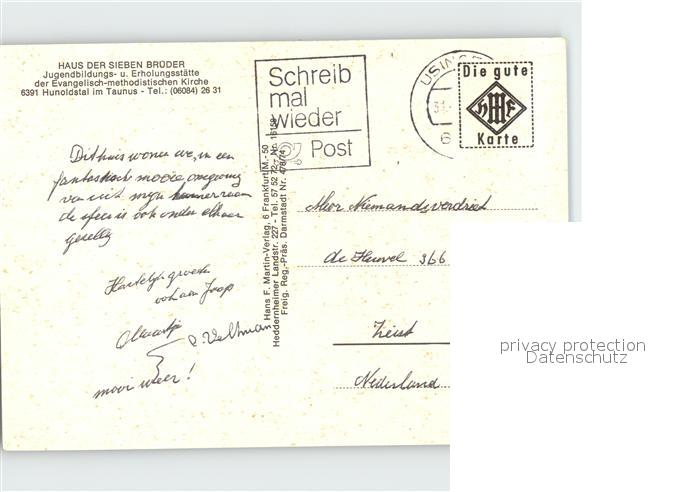 HAUS DER SIEBEN BRÜDER
Jugendbildungs- u. Erholungsstätte
der Evangelisch-methodistischen Kirche
6391 Hunoldstal im Taunus - Tel.: (06084) 26 31
Schreib
mal
wieder
Post
USING
31.
6
Die gute
HMF
Karte
Dit huis wonen we, in een
fantastisch mooie omgeving
van uit mijn kamerraam
de sfeer is ook onder elkaar
gezellig
Hartelijk groeten
ook aan Jaap
Maartje
C. Veltman
mooi weer!
Hans F. Martin-Verlag, 6 Frankfurt/M.-50
Heddernheimer Landstr. 227 - Tel. 57 52 72 - Nr. 16158
Freig. Reg.-Präs. Darmstadt Nr. 478/74
Mevr Niemandsverdriet
de Heuvel 366
Zeist
Nederland
privacy protection
Datenschutz